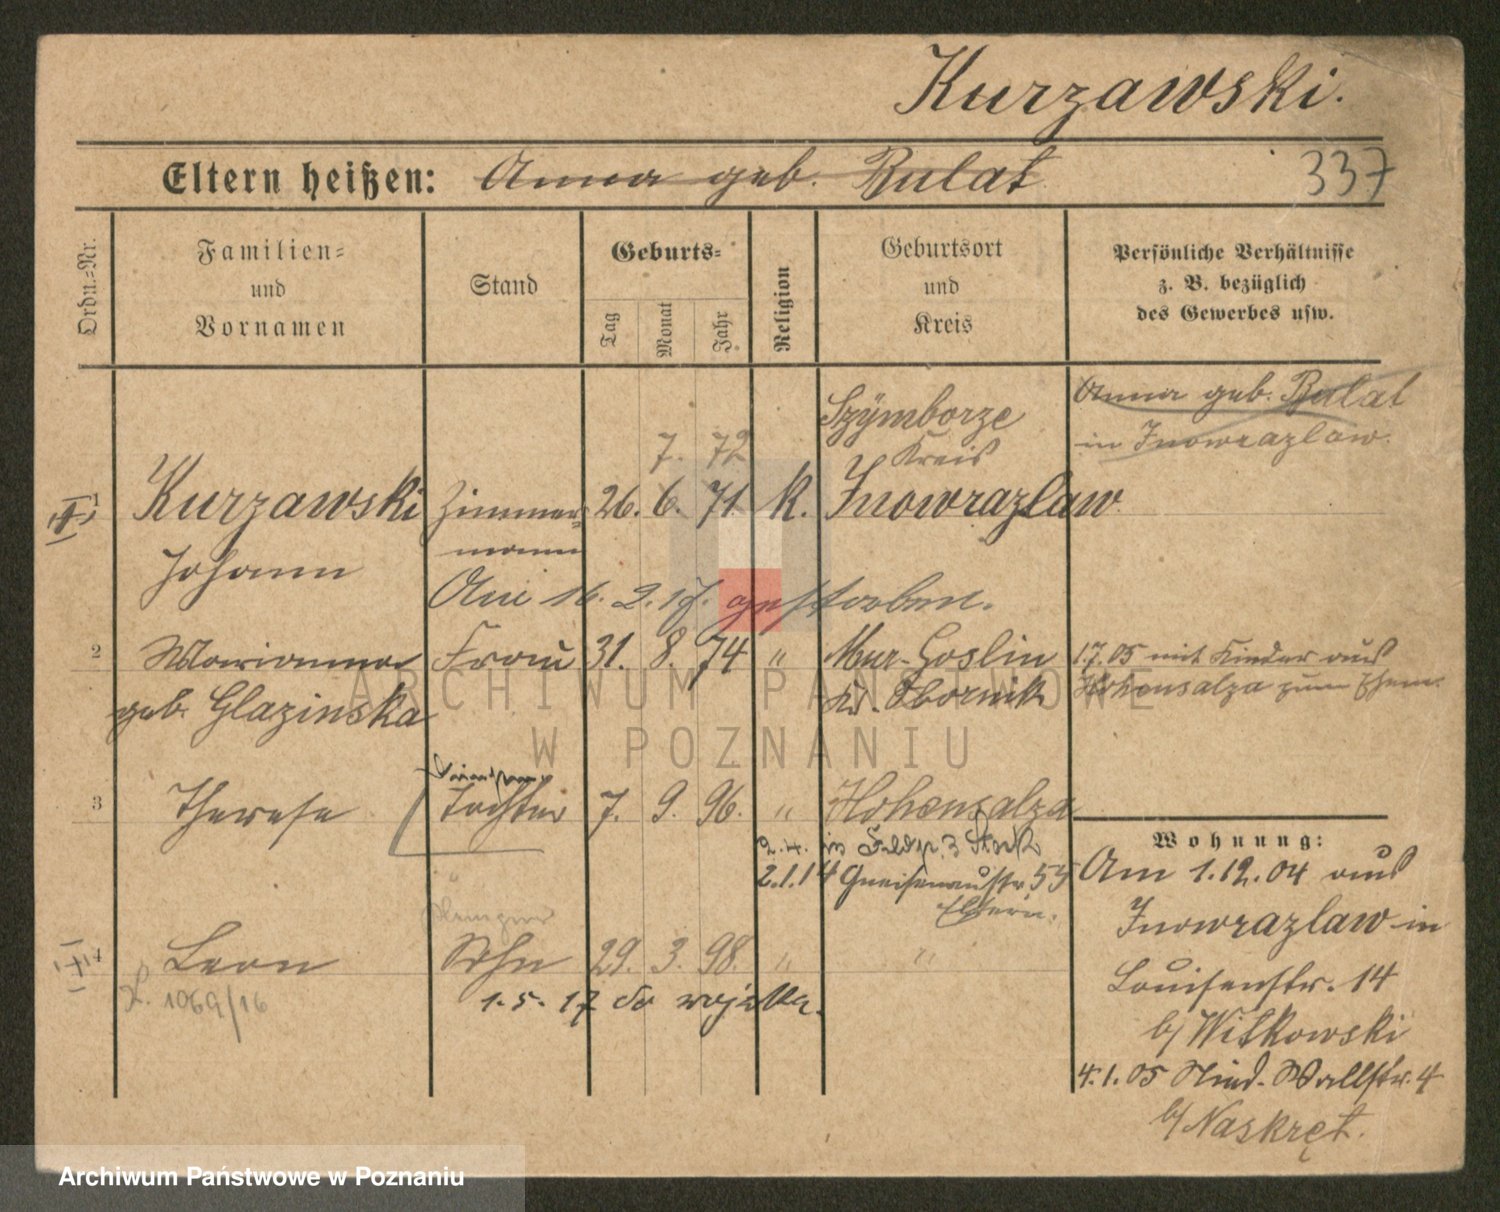 Kurzawski.
Eltern heißen: Anna geb. Bulat
337
Ordn.-Nr.
Familien-
und
Vornamen
Stand
Geburts-
Tag
Monat
Jahr
Religion
Geburtsort
und
Kreis
Persönliche Verhältnisse
z. B. bezüglich
des Gewerbes usw.
Anna geb. Bulat
in Inowrazlaw.
7. 72
Szÿmborze
Kreis
1 Kurzawski Zimmer- 26. 6. 71 k. Inowrazlaw
Johann mann
Am 16. 2. 17. gestorben.
2 Marianna Frau 31. 8. 74 " Mur-Goslin
geb. Glazinska Kr. Obornik
1.7.05 mit Kinder aus
Hohensalza zum Ehem.
3 Therese Tochter 7. 9. 96. " Hohensalza
2.4. in
2.1.14 Gneisenaustr. 55
Eltern.
4 Leon Sohn 29. 3. 98. " "
L. 1069/16
1.5.17 do wojska.
Wohnung:
Am 1.12.04 aus
Inowrazlaw in
Louisenstr. 14
b/ Witkowski
4.1.05 Wallstr. 4
b/ Naskręt.
ARCHIWUM PAŃSTWOWE
W POZNANIU
Archiwum Państwowe w Poznaniu